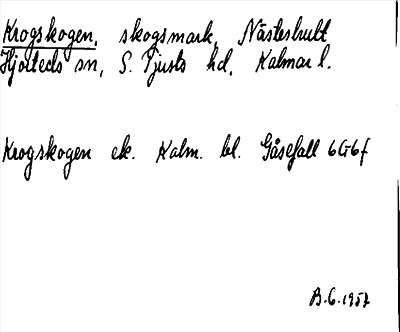 Krogskogen, skogsmark, Nästeshult
Hjorteds sn, S. Tjusts hd, Kalmar l.
Krogskogen ek. Kalm. bl. Gåsefall 6G6f
B.G. 1957